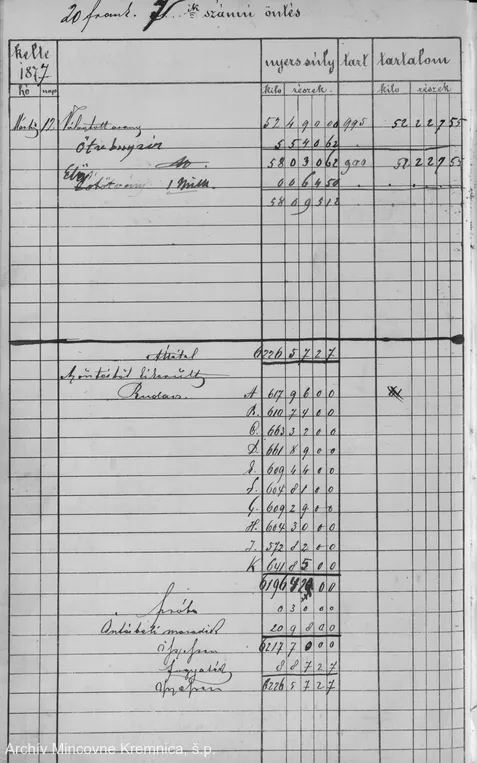 20 frank. 71 ik számú öntés
kelte 1877 nyers súly tart tartalom
hó nap kilo részek kilo részek
12 Választott arany 52 490 00 995 52 227 55
Ötvény réz 5 540 62
58 030 62 900 52 227 55
0 064 50
58 095 12
Átvitel 6226 5 7 2 7
Az öntésből kikerült
Rudas A 617 9 6 0 0
B. 610 7 4 0 0
C. 663 3 2 0 0
D. 661 8 9 0 0
E. 609 4 4 0 0
F. 604 8 1 0 0
G. 609 2 9 0 0
H. 604 3 0 0 0
J. 572 8 2 0 0
K 641 8 5 0 0
6196 4 2 0 0
próba 0 3 0 0 0
Öntésbeli maradék 20 9 8 0 0
Összesen 6217 7 0 0 0
fogyaték 8 8 7 2 7
Összesen 6226 5 7 2 7
Archív Mincovne Kremnica, š.p.